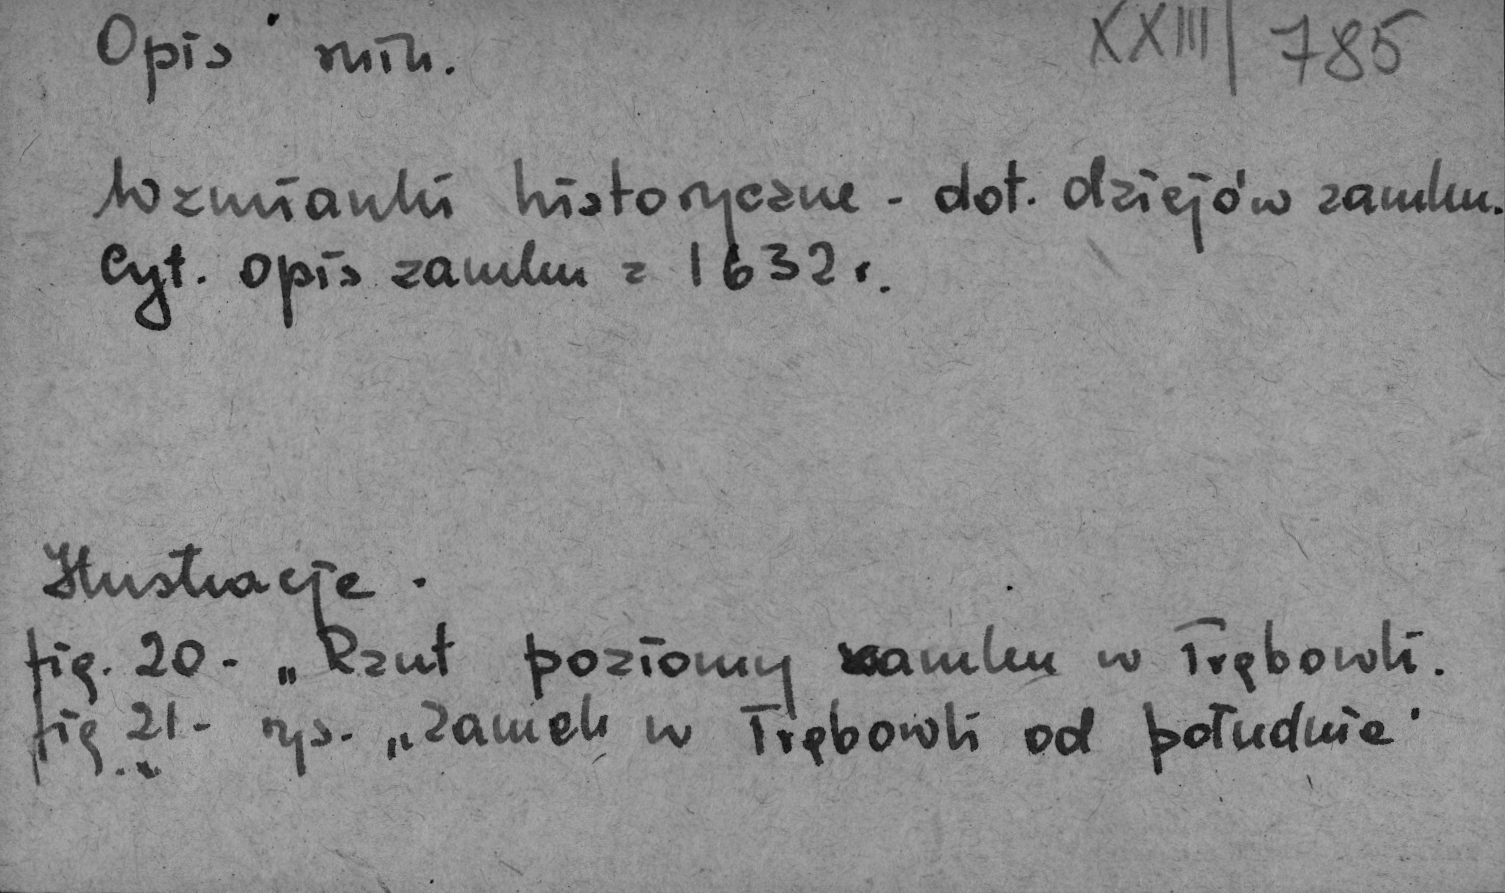 Opis ruin. XXIII/785
Wzmianki historyczne - dot. dziejów zamku.
Cyt. opis zamku z 1632 r.
Ilustracje.
fig. 20 - „Rzut poziomy zamku w Trębowli.
fig. 21 - rys. „Zamek w Trębowli od południe"